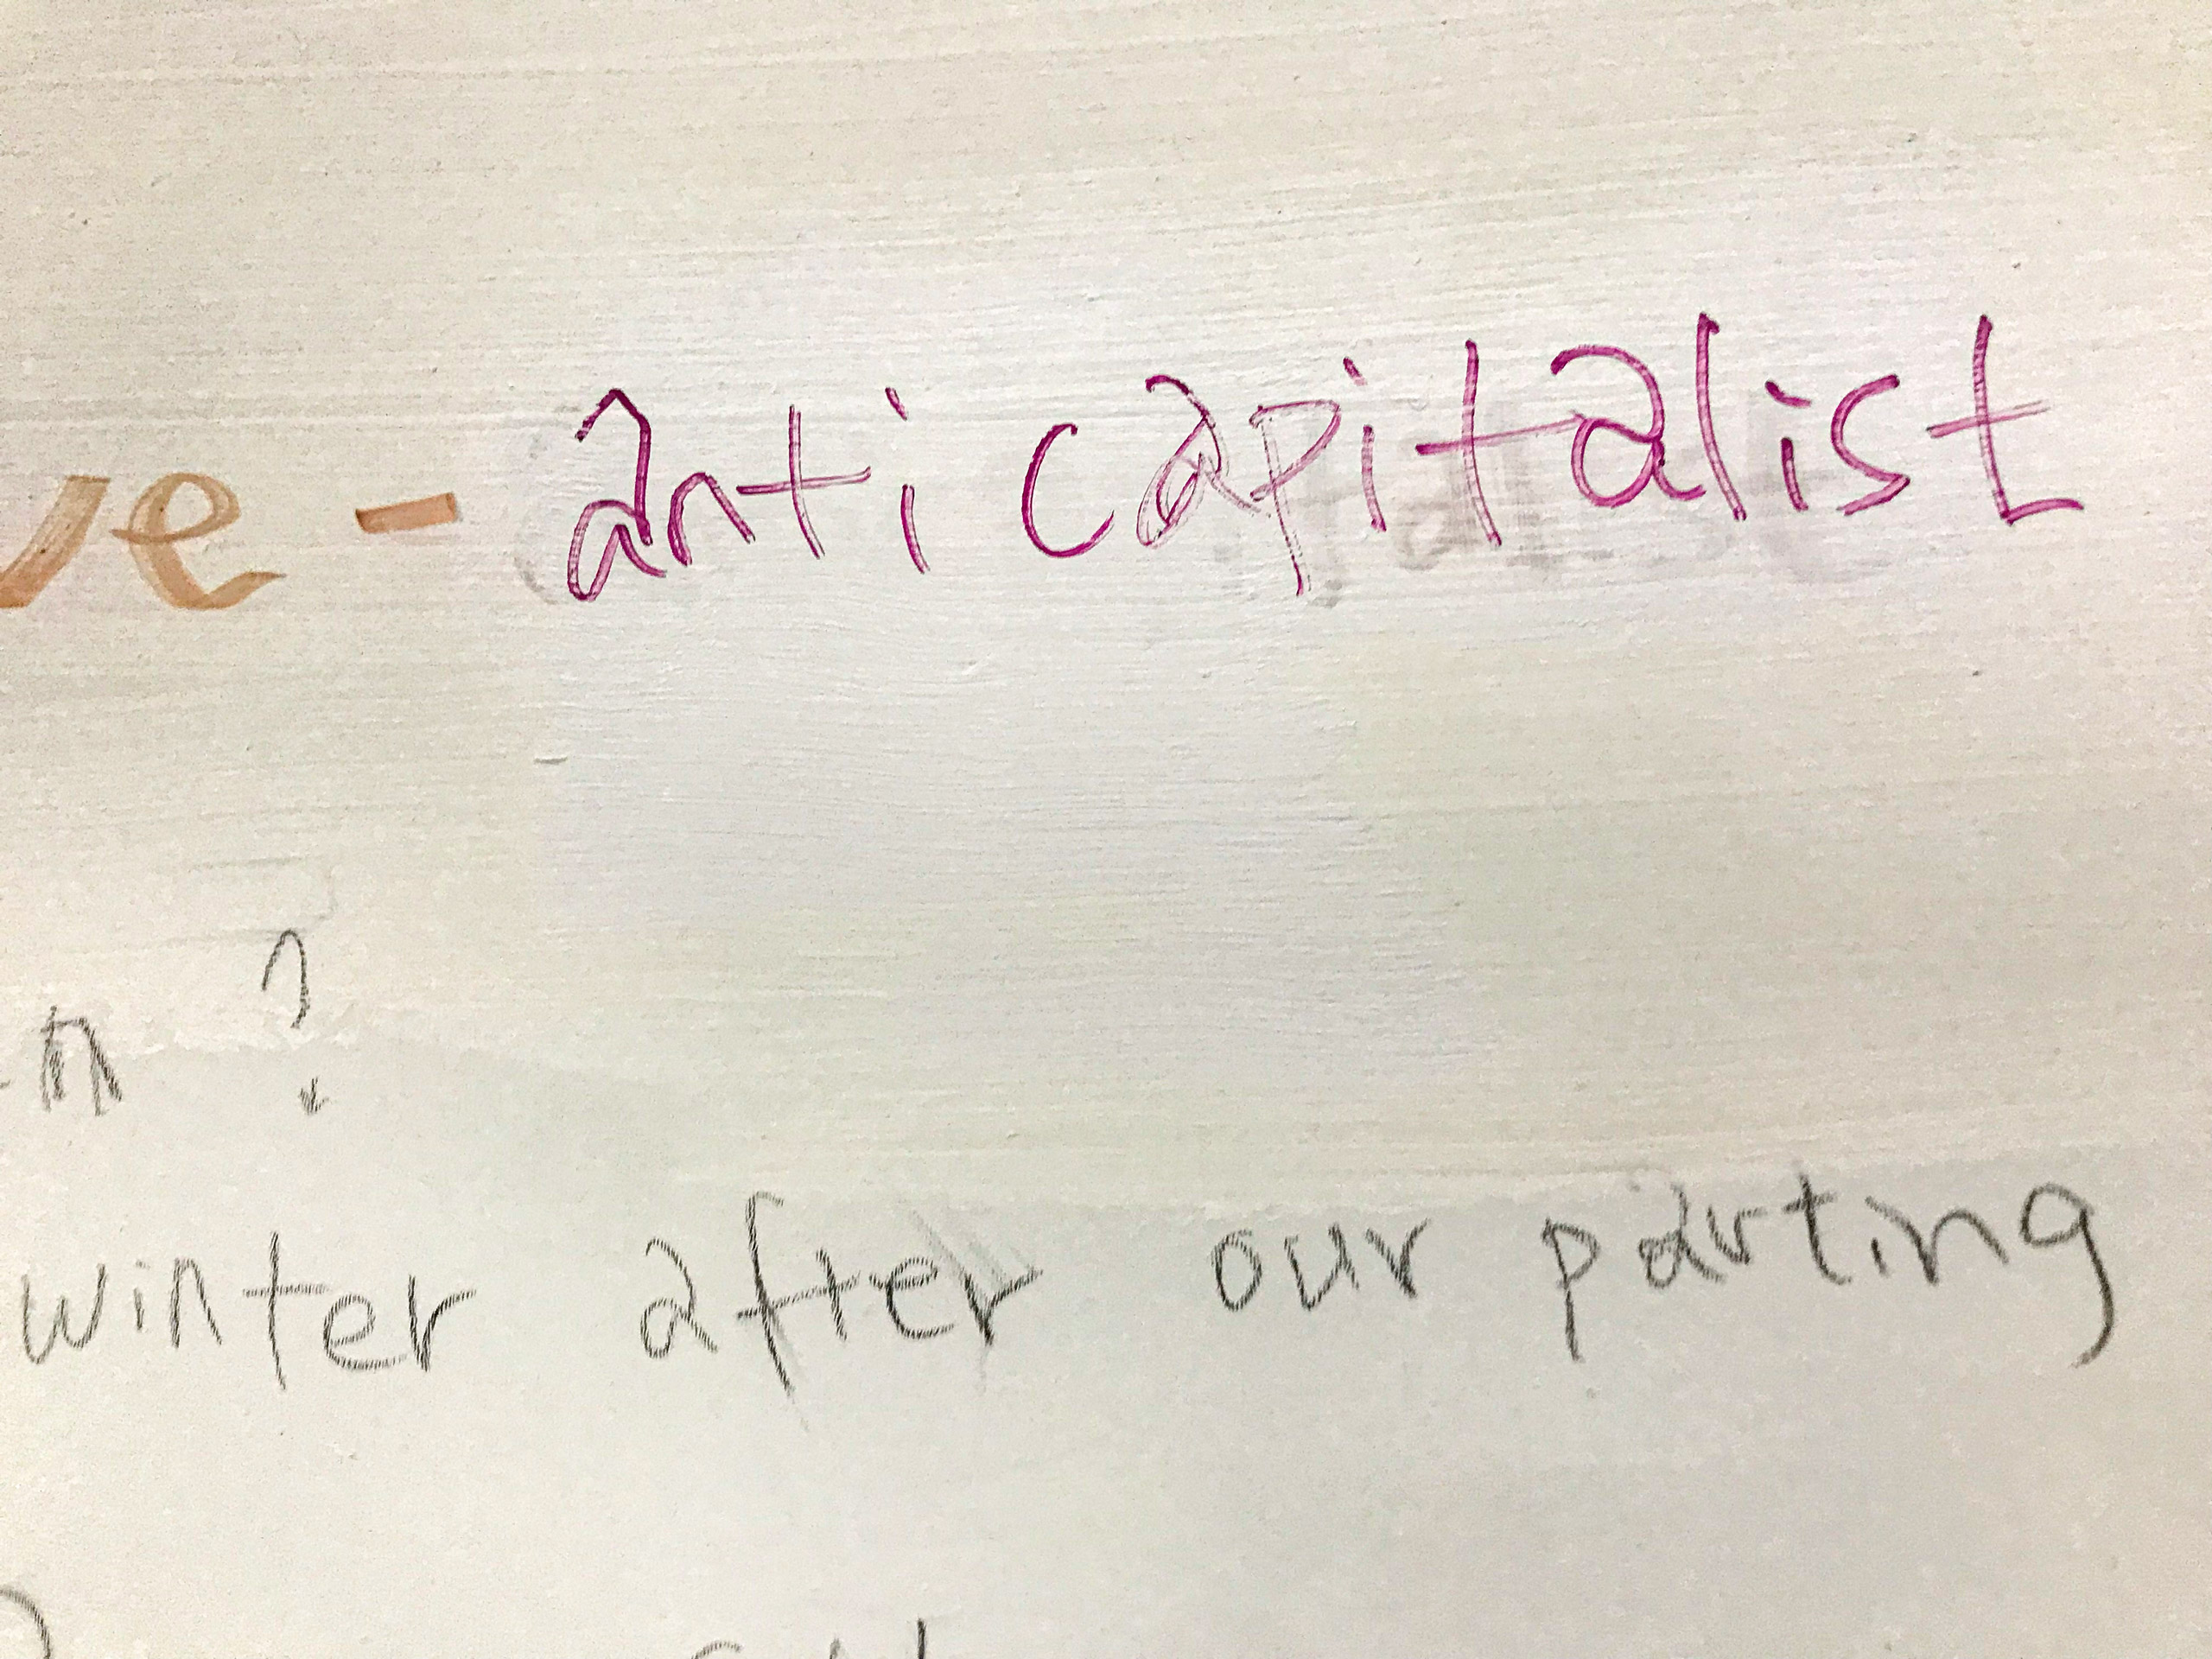 ve - anti capitalist
n ?
winter after our parting